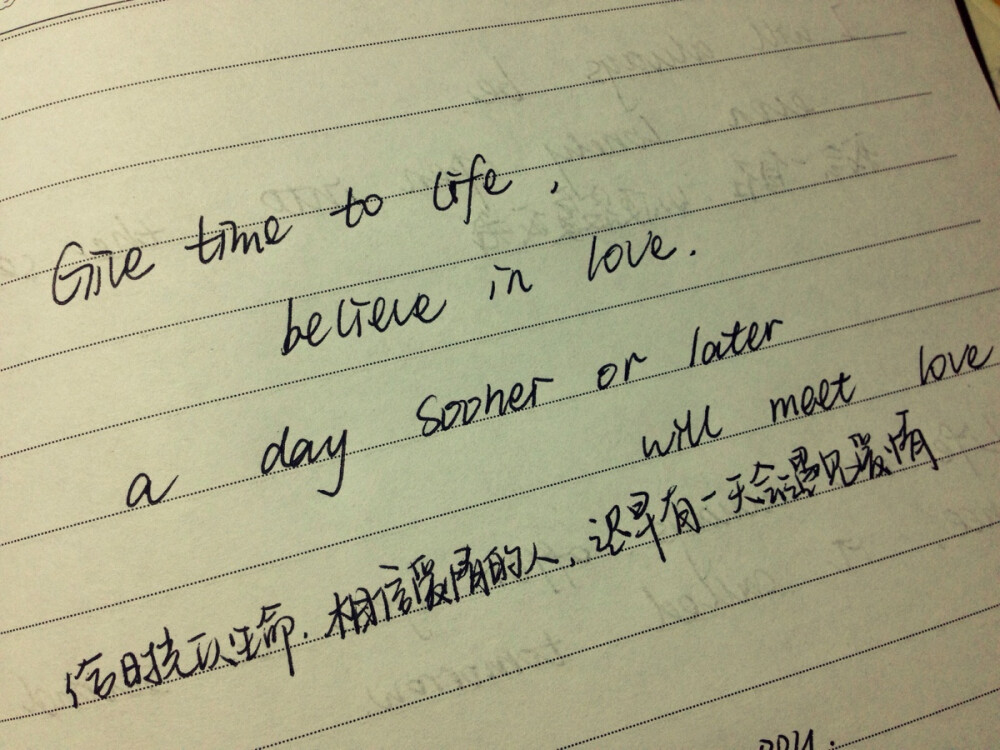 Give time to life,
believe in love.
a day sooner or later
will meet love
时光以生命.相信爱情的人,迟早有一天会遇见爱情